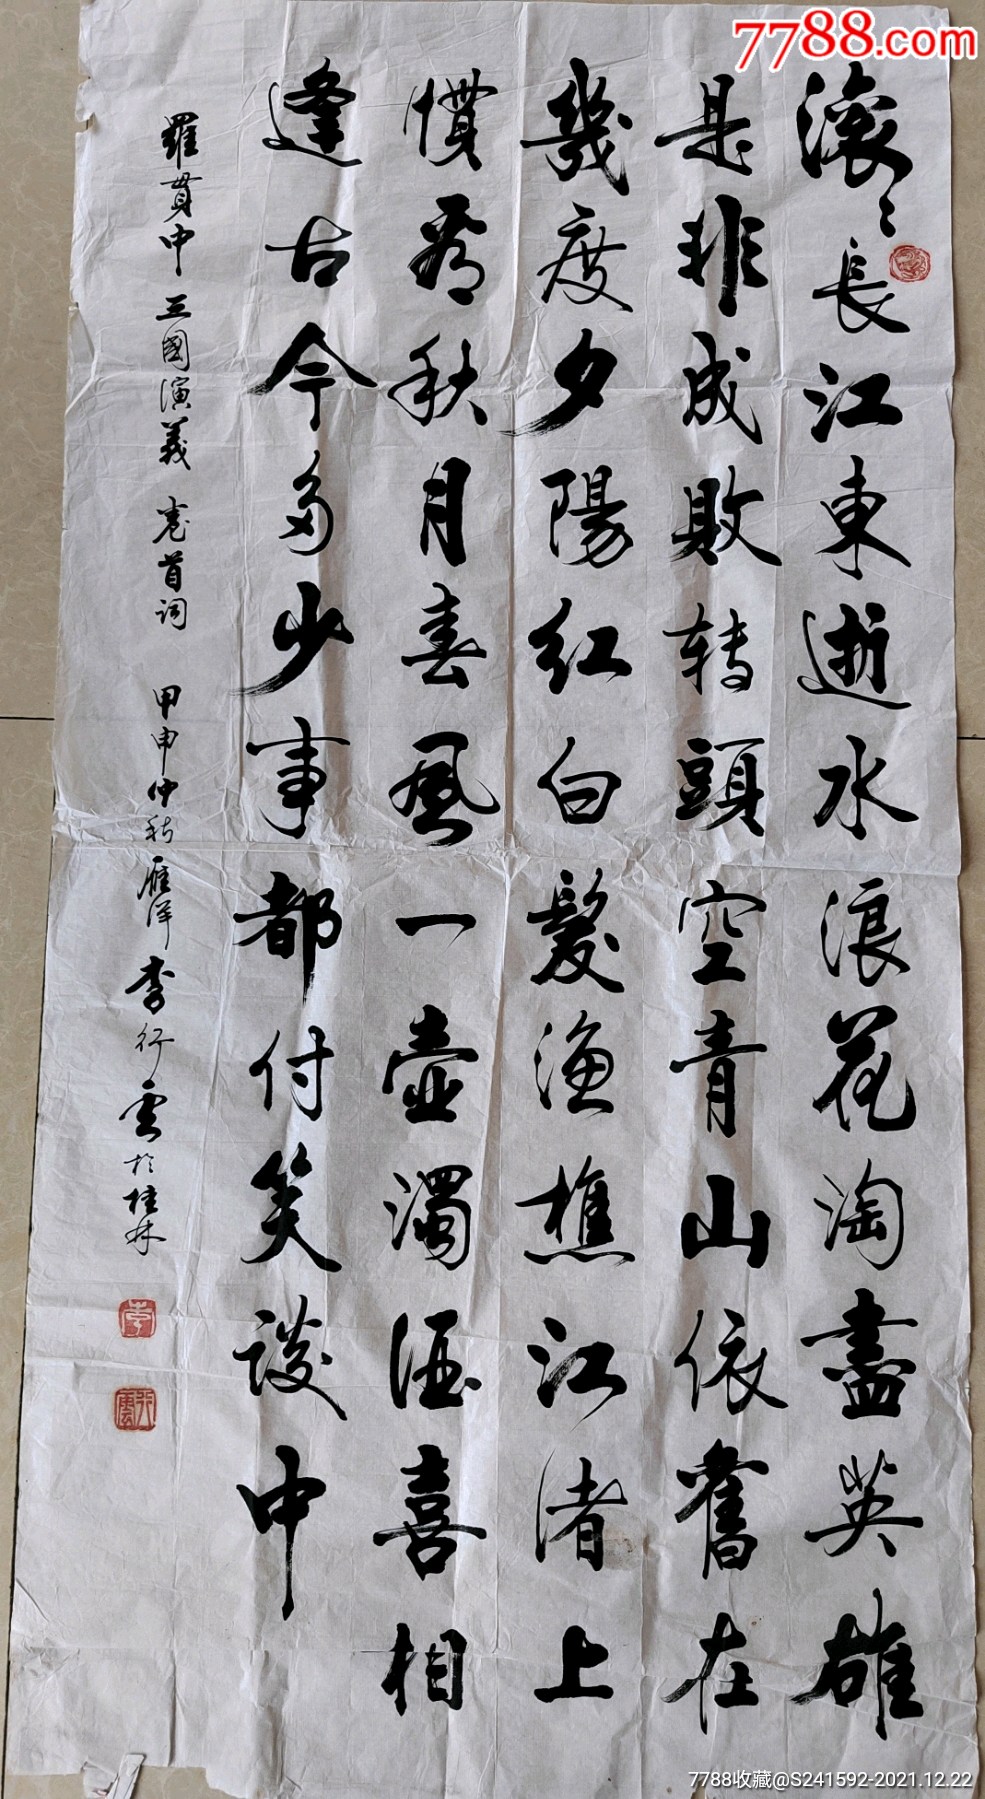 7788.com
滚〻長江東逝水浪花淘盡英雄
是非成敗转頭空青山依舊在
幾度夕陽红白髮渔樵江渚上
慣看秋月春風一壺濁酒喜相
逢古今多少事都付笑談中
羅貫中 三國演義 卷首词 甲申仲秋雁洋李行雲於桂林
李
行雲
7788收藏@S241592-2021.12.22